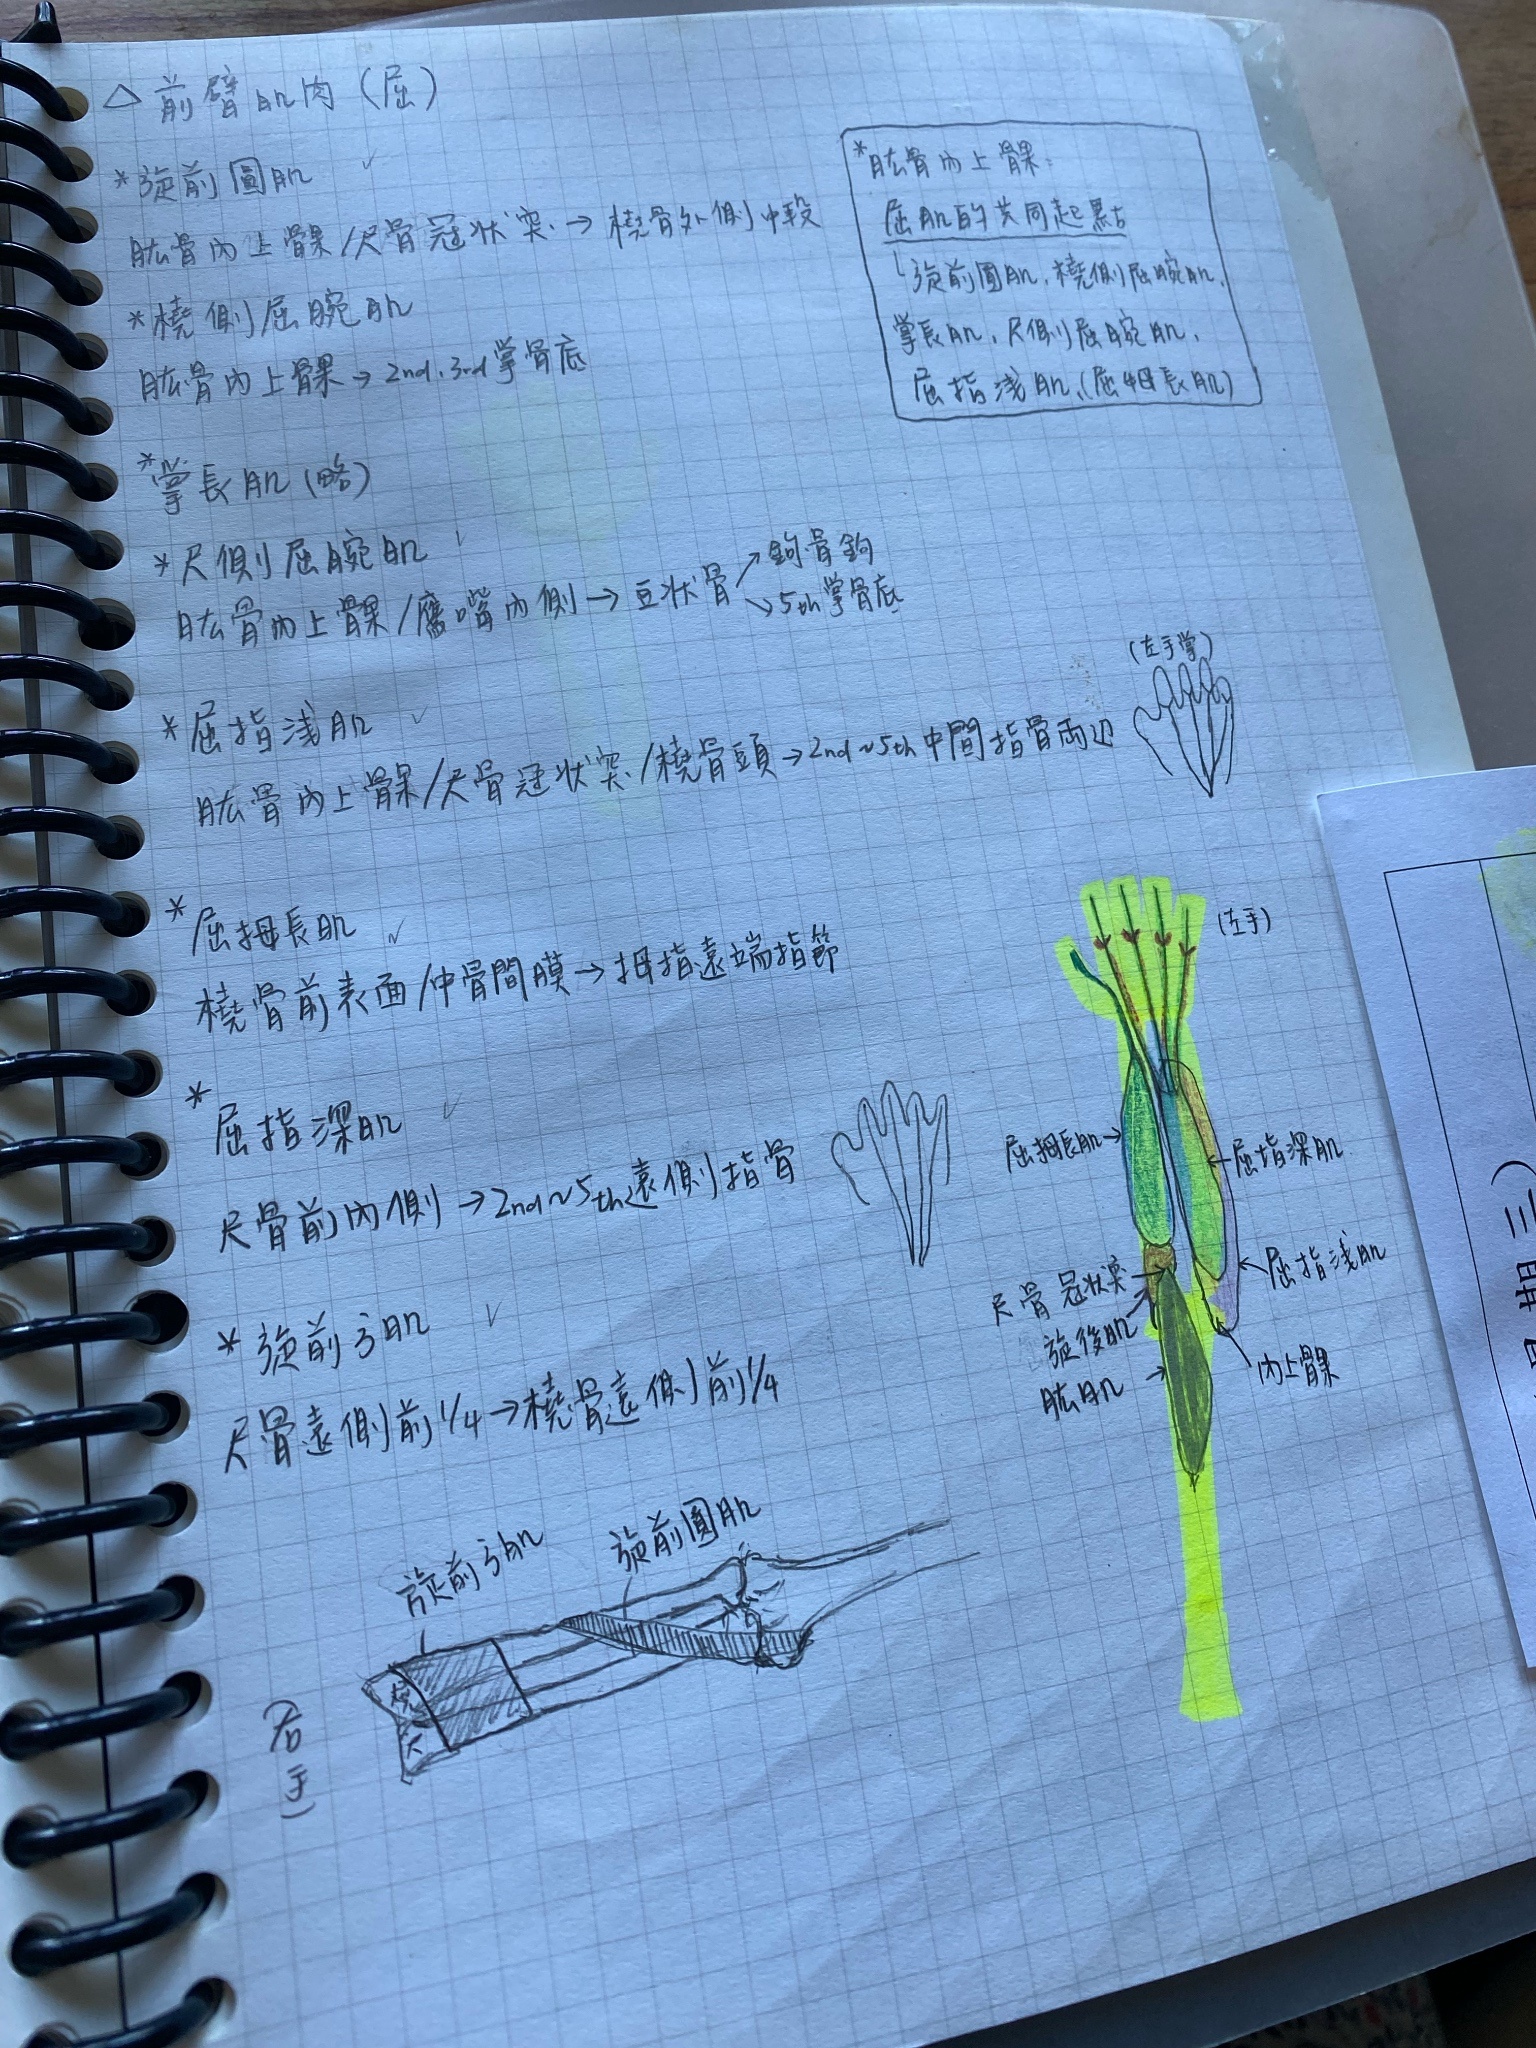 △ 前臂肌肉（屈）
* 旋前圓肌 ✓
肱骨內上髁/尺骨冠狀突→橈骨外側中段
* 橈側屈腕肌
肱骨內上髁→2nd.3rd掌骨底
* 掌長肌（略）
* 尺側屈腕肌
肱骨內上髁/鷹嘴內側→豆狀骨↗鉤骨鉤
↘5th掌骨底
* 屈指淺肌 ✓
肱骨內上髁/尺骨冠狀突/橈骨頭→2nd~5th中間指骨両辺
* 屈拇長肌 ✓
橈骨前表面/中骨間膜→拇指遠端指節
* 屈指深肌 ✓
尺骨前內側→2nd~5th遠側指骨
* 旋前方肌 ✓
尺骨遠側前1/4→橈骨遠側前1/4
* 肱骨內上髁：
屈肌的共同起點
└旋前圓肌、橈側屈腕肌、
掌長肌、尺側屈腕肌、
屈指淺肌、(屈拇長肌)
(左手掌)
(左手)
屈拇長肌→
←屈指深肌
←屈指淺肌
尺骨冠狀突
旋後肌
肱肌
內上髁
旋前方肌
旋前圓肌
橈
尺
(右手)
三